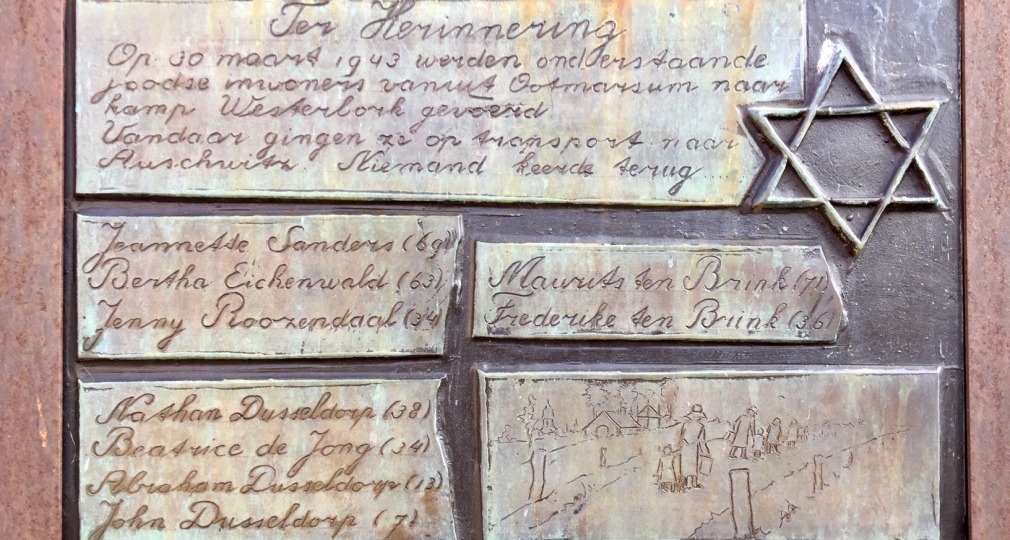 Ter Herinnering
Op 30 maart 1943 werden onderstaande
joodse inwoners vanuit Ootmarsum naar
kamp Westerbork gevoerd
Vandaar gingen ze op transport naar
Auschwitz. Niemand keerde terug...
Jeannette Sanders (69)
Bertha Eichenwald (63)
Jenny Roozendaal (34)
Maurits ten Brink (71)
Frederike ten Brink (36)
Nathan Dusseldorp (38)
Beatrice de Jong (34)
Abraham Dusseldorp (13)
John Dusseldorp (7)